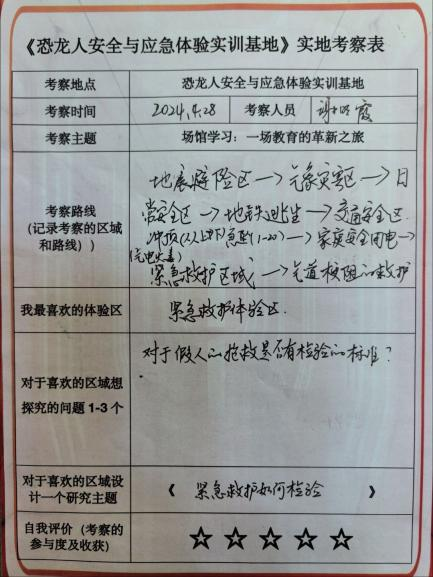 《恐龙人安全与应急体验实训基地》实地考察表
考察地点 恐龙人安全与应急体验实训基地
考察时间 2024.4.28 考察人员 霞
考察主题 场馆学习：一场教育的革新之旅
考察路线
(记录考察的区域
和路线））
地震避险区→气象灾害区→日
常安全区→地铁逃生→交通安全区
急坠(1-20)→家庭安全用电→
紧急救护区域→气道梗阻的救护
我最喜欢的体验区 紧急救护体验区.
对于喜欢的区域想
探究的问题 1-3 个
对于假人的抢救是否有检验的标准？
对于喜欢的区域设
计一个研究主题
《 紧急救护如何检验 》
自我评价（考察的
参与度及收获）
☆ ☆ ☆ ☆ ☆